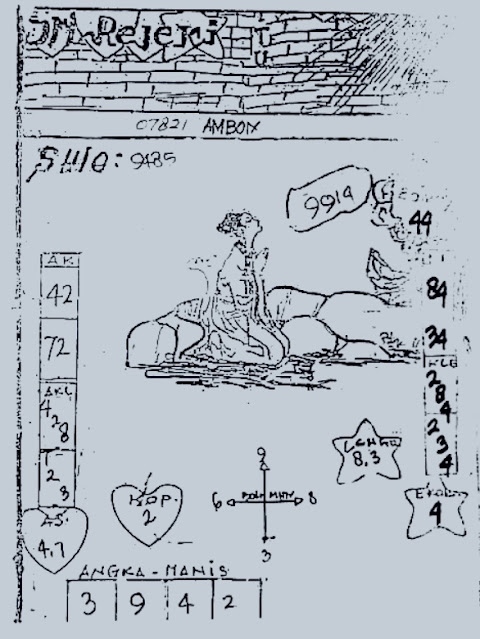 JM Rejeki
07821 AMBON
SHIO: 9485
9914
44
84
34
KLB
2
8
4
2
3
4
EKOR
4
AK
42
72
AKL
4
2
8
1
2
3
AS.
4.7
KOP.
2
9
6
8
3
8.3
ANGKA - MANIS
3 9 4 2